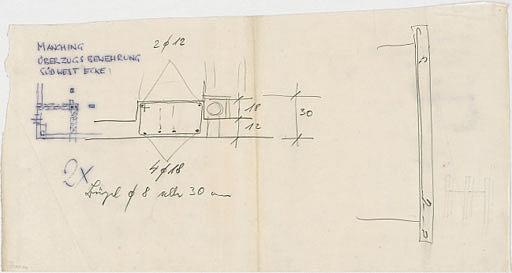 MANCHING
ÜBERZUGSBEWEHRUNG
SÜDWEST ECKE:
2 ϕ 12
18
12
30
4 ϕ 18
2x
Bügel ϕ 8 alle 30 cm